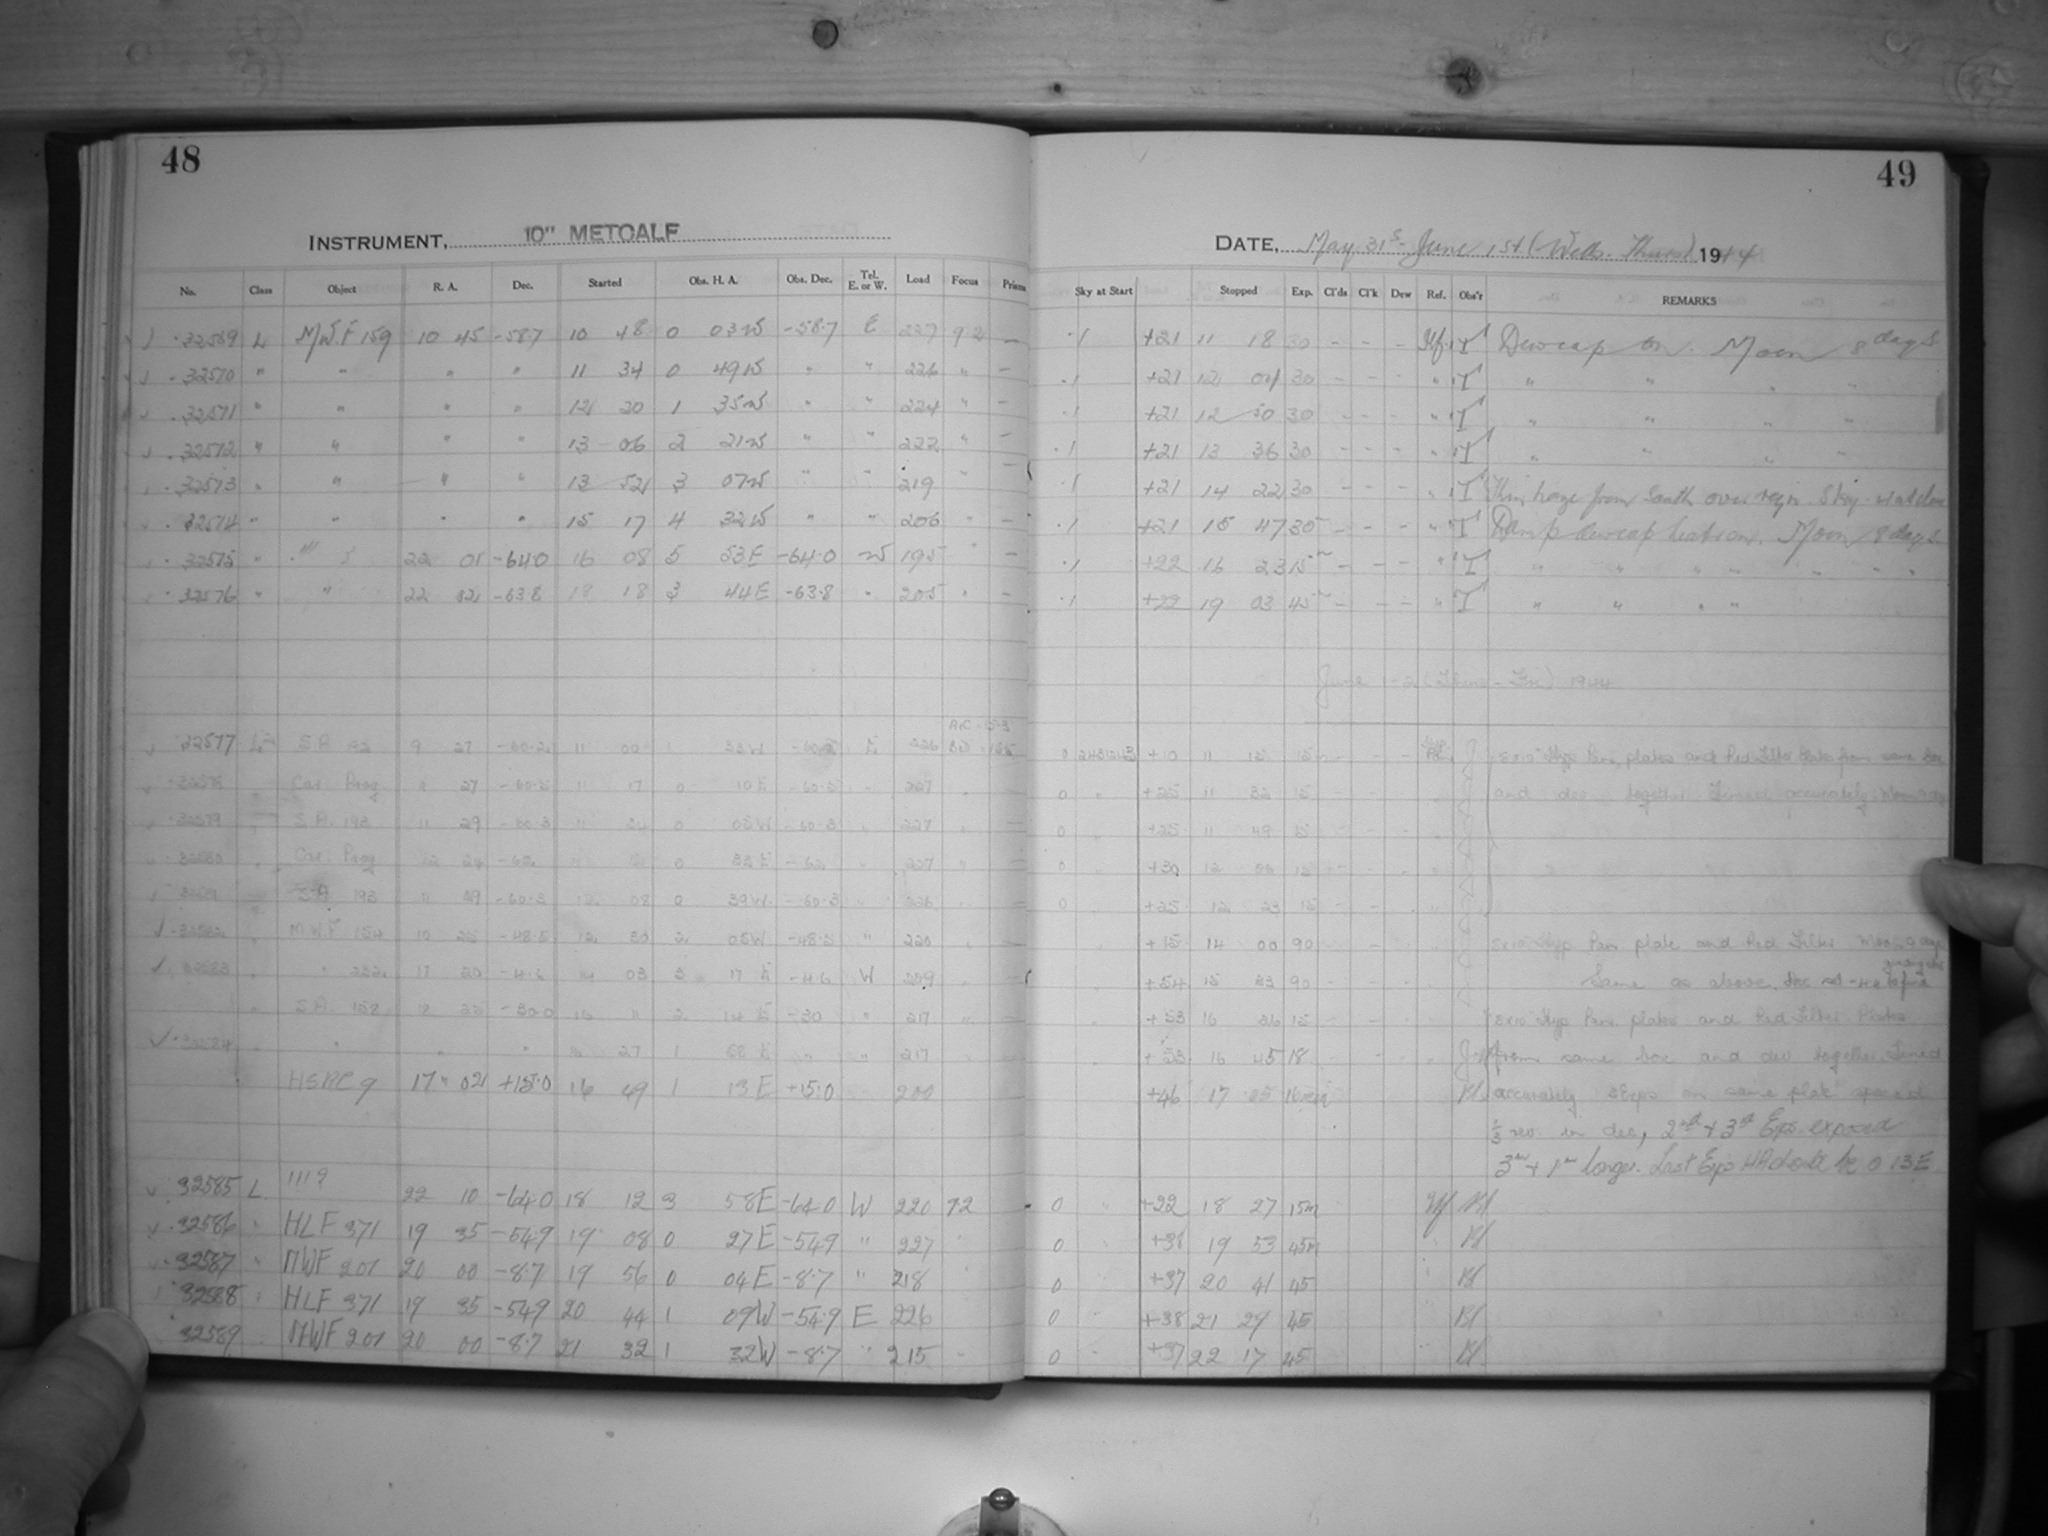 48
INSTRUMENT, 10" METCALF
No. Class Object R. A. Dec. Started Obs. H. A. Obs. Dec. Tel. E. or W. Load Focus Prisms
32569 L MWF 159 10 45 -58.7 10 48 0 03W -58.7 E 227 92 —
32570 " " " " 11 34 0 49W " " 226 " —
32571 " " " " 12 20 1 35W " " 224 " —
32572 " " " " 13 06 2 21W " " 222 " —
32573 " " " " 13 52 3 07W " " 219 " —
32574 " " " " 15 17 4 32W " " 206 " —
32575 " 22 01 -64.0 16 08 5 53E -64.0 W 195 " —
32576 " " 22 02 -63.8 18 18 3 44E -63.8 " 205 " —
32577 S.A. 9 27 -60.2 11 00 1 33W E 226
32578 Car. Prog " 27 -60.5 11 17 0 10E -60.5 " 227
32579 S.A. 193 11 29 -60.3 11 34 0 05W -60.3 " 227
32580 Car. Prog 12 24 -62 0 33E -62 " 227
S.A. 193 11 29 -60.3 12 08 0 39W -60.3 " 226
32582 MWF 154 10 25 -48.5 12 30 2 05W -48.5 " 220
32583 " 232 17 20 -4.6 14 03 3 17E -4.6 W 209
S.A. 158 18 25 -30.0 16 11 2 14E -30 " 217
32584 " " " 16 27 1 58E " " 217
HSRC 9 17 02 +15.0 16 49 1 13E +15.0 200
32585 L 1119 22 10 -64.0 18 12 3 58E -64.0 W 220 92
32586 " HLF 371 19 35 -54.9 19 08 0 27E -54.9 " 227
32587 " MWF 201 20 00 -8.7 19 56 0 04E -8.7 " 218
32588 " HLF 371 19 35 -54.9 20 44 1 09W -54.9 E 226
32589 MWF 201 20 00 -8.7 21 32 1 32W -8.7 " 215
49
DATE, May 31st - June 1st (Weds. Thurs) 1944
Sky at Start Stopped Exp. Cl'ds Cl'k Dew Ref. Obs'r REMARKS
.1 +21 11 18 30 - - - Dewcap on. Moon 8 days
.1 +21 12 04 30 - - - " " " " "
.1 +21 12 50 30 - - - " " " " "
.1 +21 13 36 30 - - - " " " " "
.1 +21 14 22 30 - - - " Thin haze from South over region
.1 +21 15 47 30 - - - " Damp dewcap heat on. Moon 8 days
.1 +22 16 23 15m - - - " " " " "
.1 +22 19 03 45m - - - " " " " "
June 1-2 (Thurs - Fri) 1944
0 2431243 +10 11 15 15 8x10 Hyp Pan. plates and Red Filter Plates from same box
0 " +25 11 32 15 and dev together. Timed accurately. Moon
0 +25 11 49 15
0 +30 12 06 15
0 +25 12 23 15
+15 14 00 90 8x10 Hyp Pan. plate and Red Filter Moon 9 days
+54 15 33 90 Same as above.
+53 16 26 15 8x10 Hyp Pan. plates and Red Filter Plates
+53 16 45 18 from same box and dev together. Timed
+46 17 05 16 min accurately Exps on same plate spaced
1/3 rev. in dec, 2nd + 3rd Exps exposed
3m + 1m longer. Last Exp HA should be 0 13E
0 +22 18 27 15m
0 +36 19 53 45m
0 +37 20 41 45
0 +38 21 29 45
0 +37 22 17 45